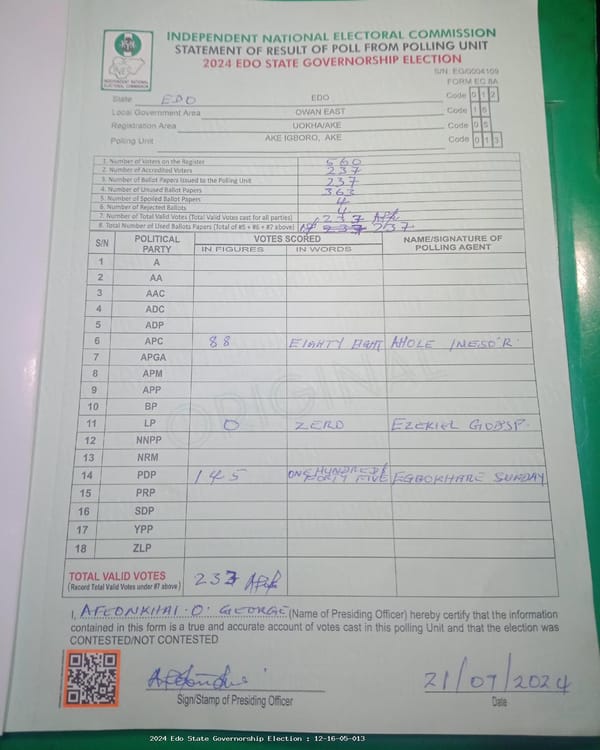 INDEPENDENT NATIONAL ELECTORAL COMMISSION
STATEMENT OF RESULT OF POLL FROM POLLING UNIT
2024 EDO STATE GOVERNORSHIP ELECTION
S/N: EG/0004109
FORM EC 8A
INEC
INDEPENDENT NATIONAL ELECTORAL COMMISSION
State EDO EDO Code 0 1 2
Local Government Area OWAN EAST Code 1 6
Registration Area UOKHA/AKE Code 0 5
Polling Unit AKE IGBORO, AKE Code 0 1 3
1. Number of Voters on the Register 560
2. Number of Accredited Voters 237
3. Number of Ballot Papers Issued to the Polling Unit 237
4. Number of Unused Ballot Papers 363
5. Number of Spoiled Ballot Papers 4
6. Number of Rejected Ballots 4
7. Number of Total Valid Votes (Total Valid Votes cast for all parties) 237
8. Total Number of Used Ballots Papers (Total of #5 + #6 + #7 above) 237 237
S/N POLITICAL PARTY VOTES SCORED NAME/SIGNATURE OF POLLING AGENT
IN FIGURES IN WORDS
1 A
2 AA
3 AAC
4 ADC
5 ADP
6 APC 88 EIGHTY EIGHT AHOLE INESO'R.
7 APGA
8 APM
9 APP
10 BP
11 LP 0 ZERO EZEKIEL GODSP.
12 NNPP
13 NRM
14 PDP 145 ONE HUNDRED & FORTY FIVE EGBOKHARE SUNDAY
15 PRP
16 SDP
17 YPP
18 ZLP
ORIGINAL
TOTAL VALID VOTES 233
(Record Total Valid Votes under #7 above)
I, AFEONKHAI O. GEORGE (Name of Presiding Officer) hereby certify that the information
contained in this form is a true and accurate account of votes cast in this polling Unit and that the election was
CONTESTED/NOT CONTESTED
Sign/Stamp of Presiding Officer
21/09/2024
Date
2024 Edo State Governorship Election : 12-16-05-013